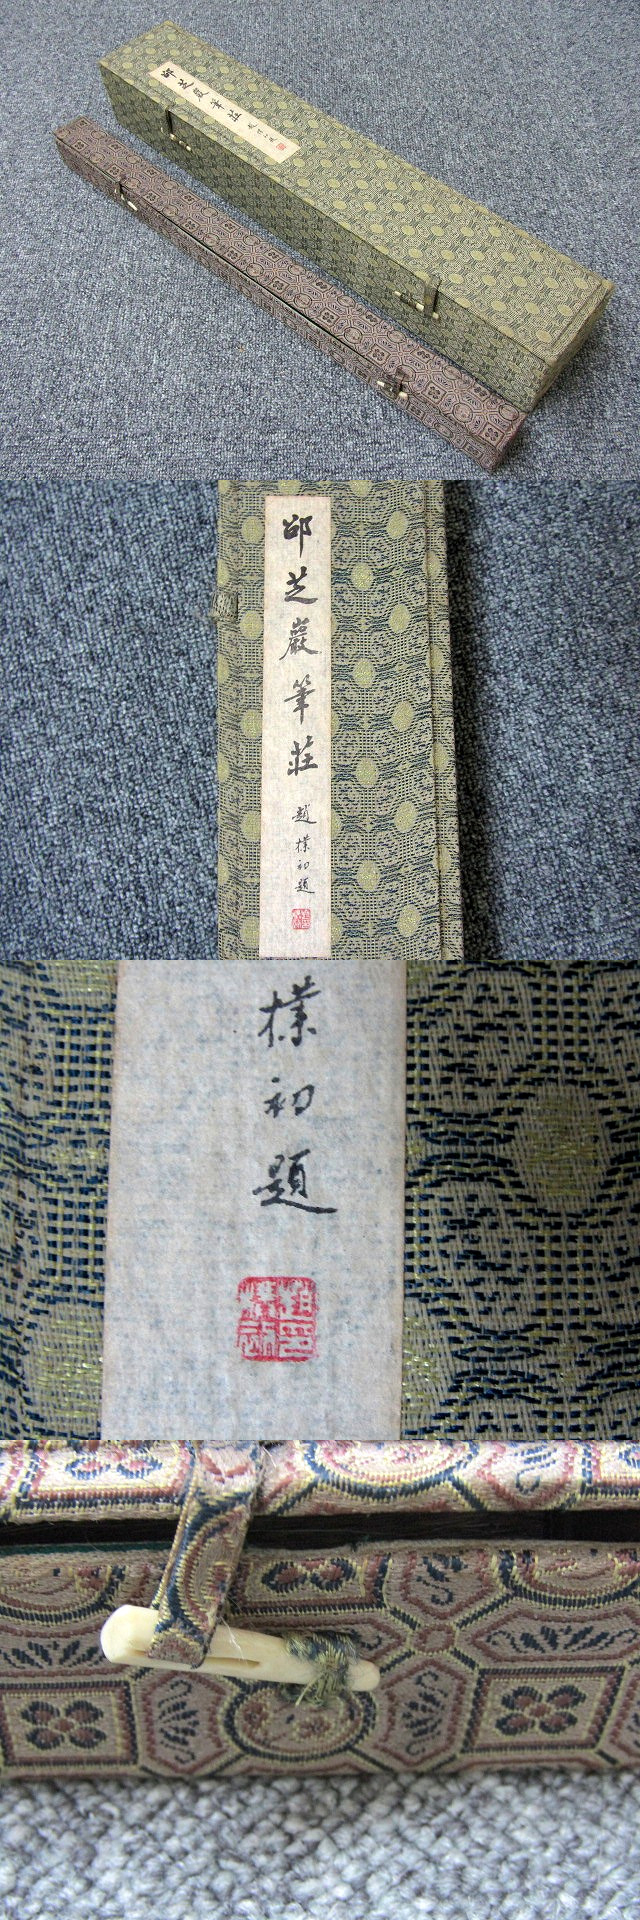 邵芝巖筆莊
趙樸初題
邵芝巖筆莊
趙樸初題
樸初題